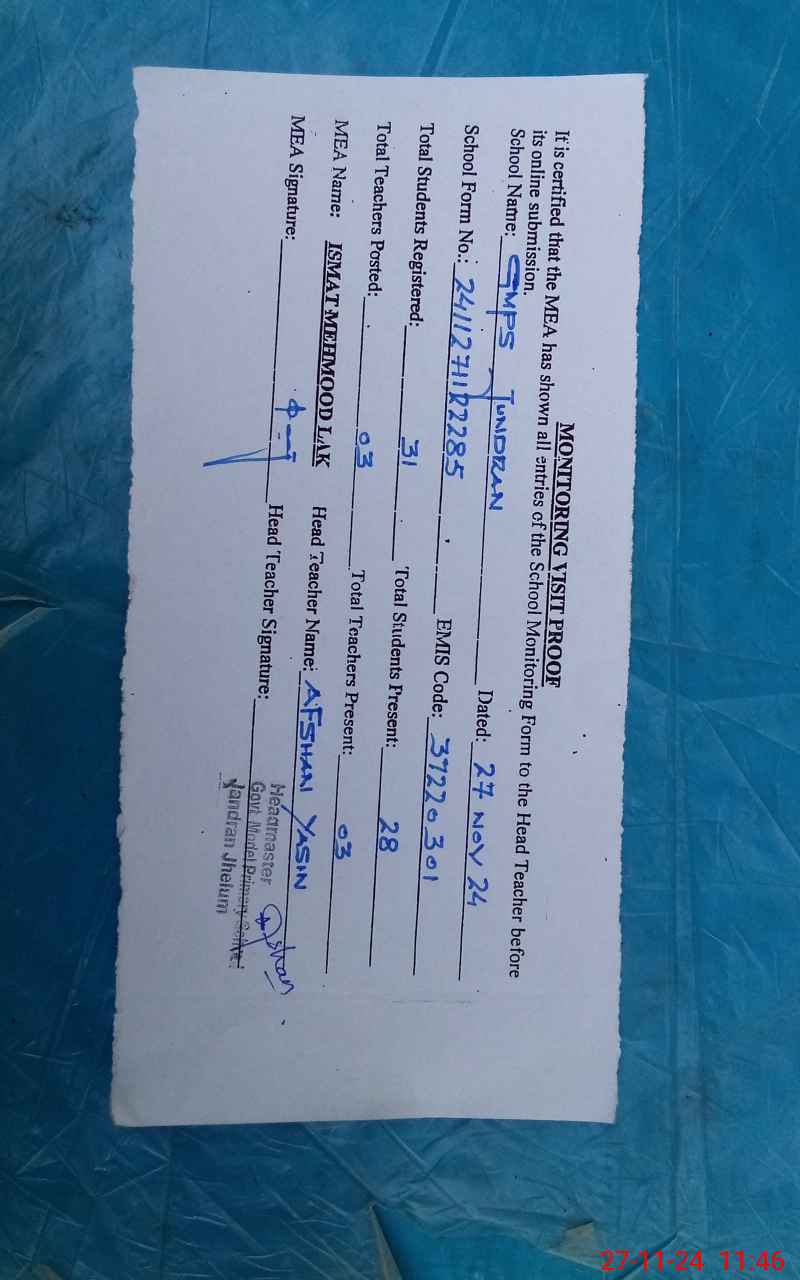 MONITORING VISIT PROOF
It is certified that the MEA has shown all entries of the School Monitoring Form to the Head Teacher before
its online submission.
School Name: GMPS JUNDRAN Dated: 27 NOV 24
School Form No.: 24112711R2285 EMIS Code: 37220301
Total Students Registered: 31 Total Students Present: 28
Total Teachers Posted: 03 Total Teachers Present: 03
MEA Name: ISMAT MEHMOOD LAK Head Teacher Name: AFSHAN YASIN
MEA Signature: Head Teacher Signature: Afshan
Headmaster
Govt Model Primary School
Jandran Jhelum
27-11-24 11:46